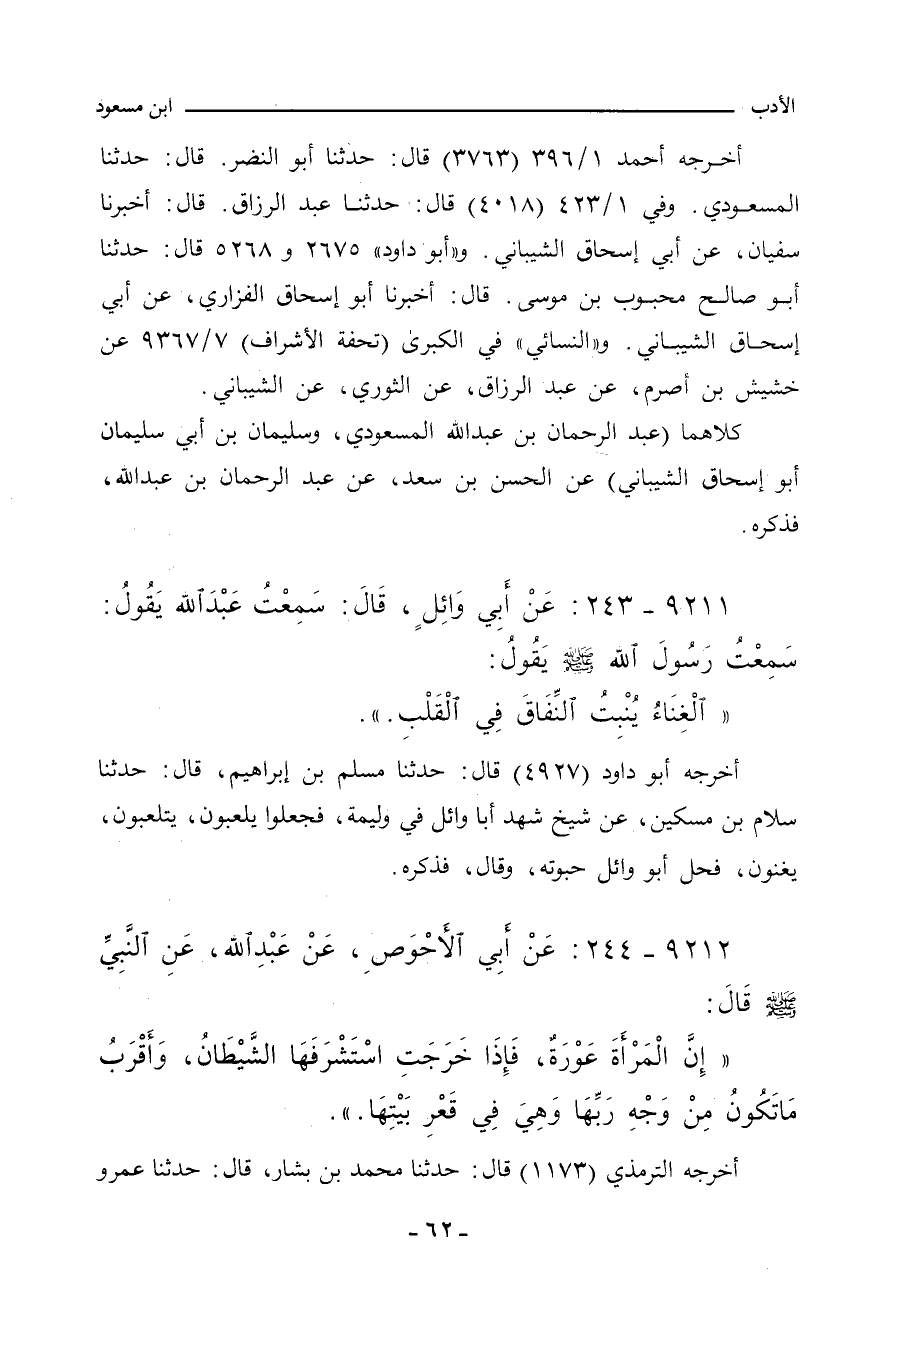 الأدب ـــــــــــــــــــــ ابن مسعود
أخـرجه أحمد ٣٩٦/١ (٣٧٦٣) قال: حدثنا أبو النضر. قال: حدثنا
المسعـودي. وفي ٤٢٣/١ (٤٠١٨) قال: حدثنـا عبد الرزاق. قال: أخبرنا
سفيان، عن أبي إسحاق الشيباني. و«أبو داود» ٢٦٧٥ و ٥٢٦٨ قال: حدثنا
أبـو صالـح محبـوب بن موسى. قال: أخبرنا أبو إسحاق الفزاري، عن أبي
إسحـاق الشيبـاني. و«النسائي» في الكبرىٰ (تحفة الأشراف) ٩٣٦٧/٧ عن
خشيش بن أصرم، عن عبد الرزاق، عن الثوري، عن الشيباني.
كلاهما (عبد الرحمان بن عبدالله المسعودي، وسليمان بن أبي سليمان
أبو إسحاق الشيباني) عن الحسن بن سعد، عن عبد الرحمان بن عبدالله،
فذكره.
٩٢١١ ـ ٢٤٣: عَنْ أَبِي وَائِلٍ، قَالَ: سَمِعْتُ عَبْدَٱللهِ يَقُولُ:
سَمِعْتُ رَسُولَ ٱللهِ ﷺ يَقُولُ:
« ٱلْغِنَاءُ يُنْبِتُ ٱلنِّفَاقَ فِي ٱلْقَلْبِ.».
أخرجه أبو داود (٤٩٢٧) قال: حدثنا مسلم بن إبراهيم، قال: حدثنا
سلام بن مسكين، عن شيخ شهد أبا وائل في وليمة، فجعلوا يلعبون، يتلعبون،
يغنون، فحل أبو وائل حبوته، وقال، فذكره.
٩٢١٢ ـ ٢٤٤: عَنْ أَبِي ٱلْأَحْوَصِ، عَنْ عَبْدِٱللهِ، عَنِ ٱلنَّبِيِّ
ﷺ قَالَ:
« إِنَّ الْمَرْأَةَ عَوْرَةٌ، فَإِذَا خَرَجَتِ اسْتَشْرَفَهَا الشَّيْطَانُ، وَأَقْرَبُ
مَاتَكُونُ مِنْ وَجْهِ رَبِّهَا وَهِيَ فِي قَعْرِ بَيْتِهَا.».
أخرجه الترمذي (١١٧٣) قال: حدثنا محمد بن بشار، قال: حدثنا عمرو
ـ ٦٢ ـ